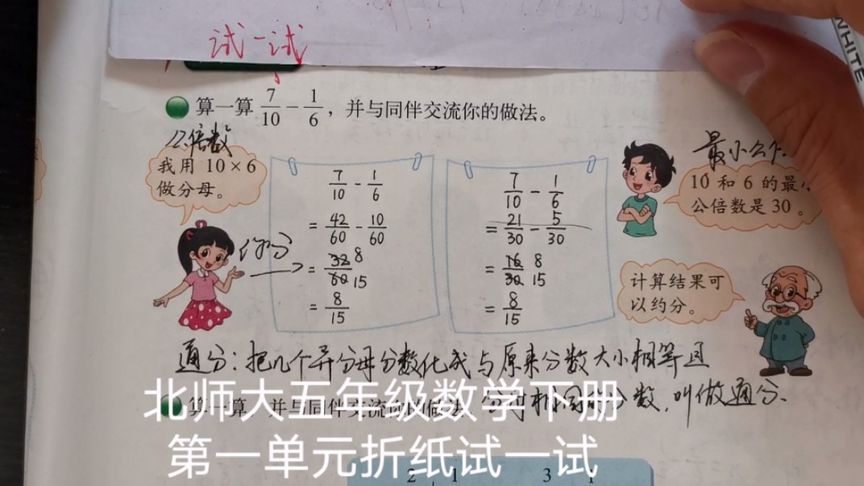 试一试
算一算 7/10 - 1/6，并与同伴交流你的做法。
公倍数
我用 10×6
做分母。
7/10 - 1/6
= 42/60 - 10/60
= 32/60 8/15
= 8/15
约分
7/10 - 1/6
= 21/30 - 5/30
= 16/30 8/15
= 8/15
最小公
10 和 6 的最
公倍数是 30 。
计算结果可
以约分。
通分：把几个异分母分数化成与原来分数大小相等且
分母相同的分数，叫做通分。
算一算，并与同伴交流你的做法
北师大五年级数学下册
第一单元折纸试一试
2 1 3 1
WHITE